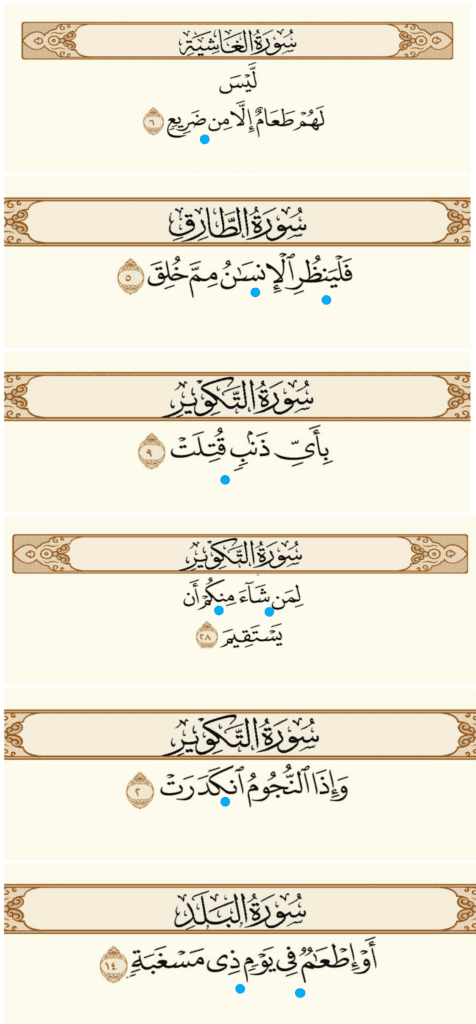 سُورَةُ الغَاشِيَةِ
لَّيۡسَ
لَهُمۡ طَعَامٌ إِلَّا مِن ضَرِيعٖ ٦
سُورَةُ الطَّارِقِ
فَلۡيَنظُرِ ٱلۡإِنسَٰنُ مِمَّ خُلِقَ ٥
سُورَةُ التَّكۡوِيرِ
بِأَيِّ ذَنۢبٖ قُتِلَتۡ ٩
سُورَةُ التَّكۡوِيرِ
لِمَن شَآءَ مِنكُمۡ أَن
يَسۡتَقِيمَ ٢٨
سُورَةُ التَّكۡوِيرِ
وَإِذَا ٱلنُّجُومُ ٱنكَدَرَتۡ ٢
سُورَةُ البَلَدِ
أَوۡ إِطۡعَٰمٞ فِي يَوۡمٖ ذِي مَسۡغَبَةٖ ١٤